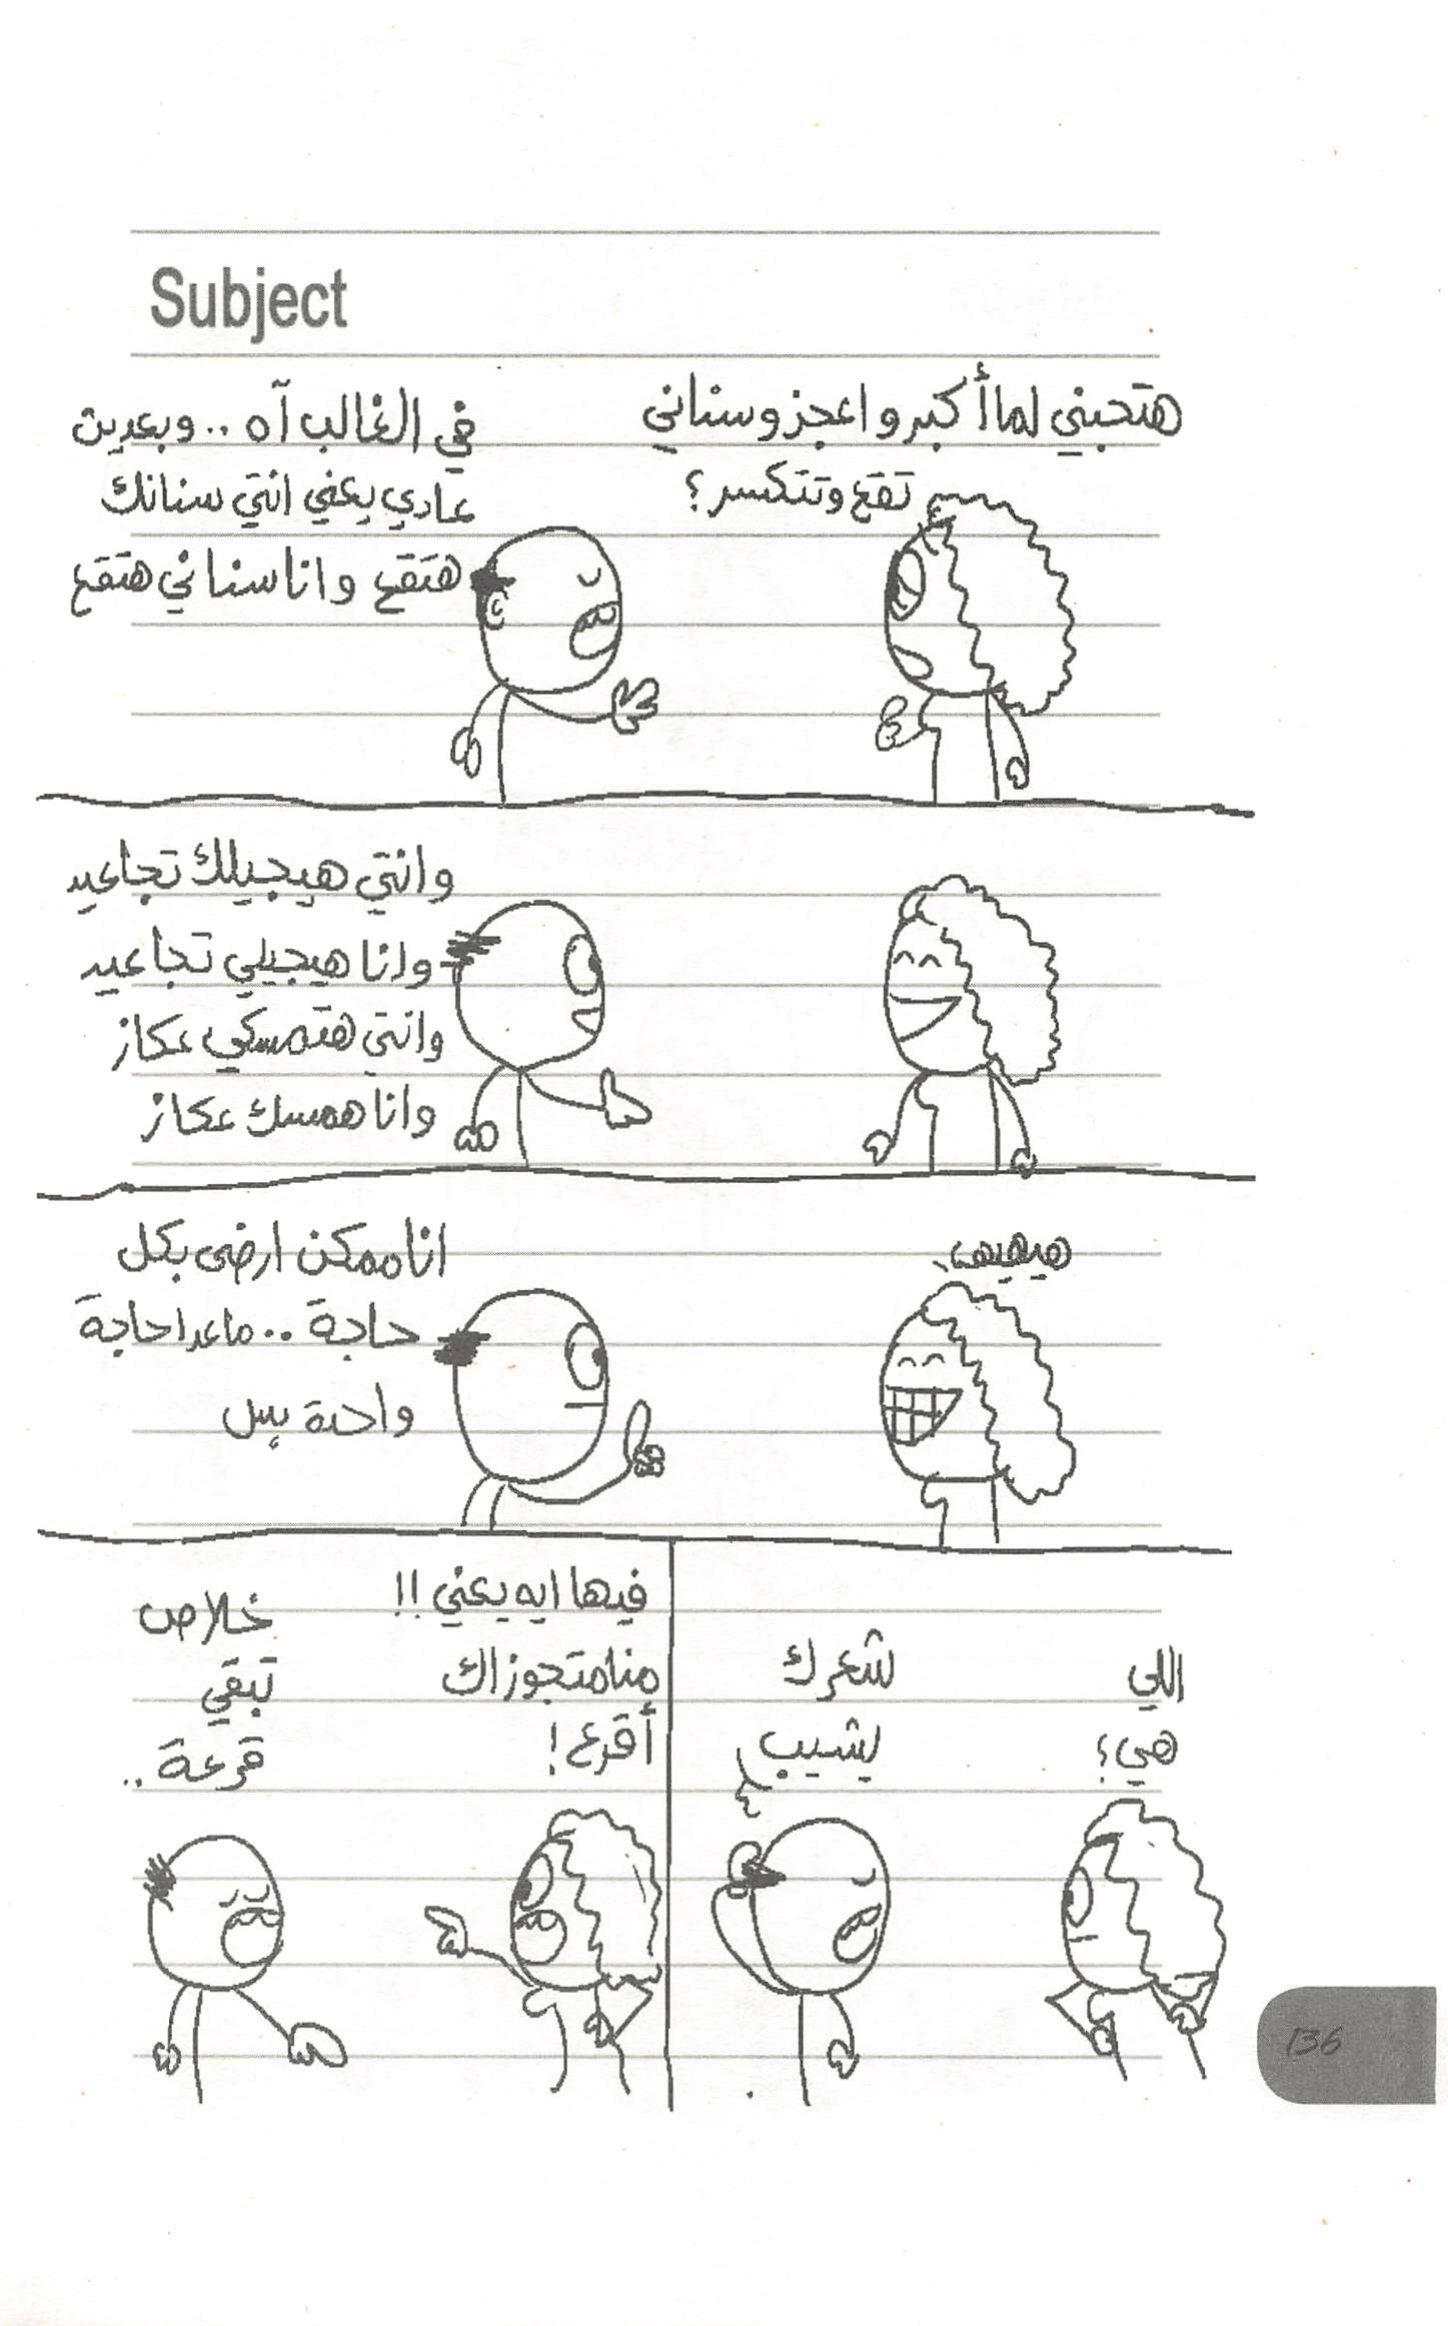 Subject
هتحبني لما أكبر واعجز وسناني
تقع وتتكسر؟
في الغالب آه .. وبعدين
عادي يعني انتي سنانك
هتقع وانا سناني هتقع
وانتي هيجيلك تجاعيد
وانا هيجيلي تجاعيد
وانتي هتمسكي عكاز
وانا همسك عكاز
هيهيهي
انا ممكن ارضى بكل
حاجة .. ماعدا حاجة
واحدة بس
اللي
هي؟
شعرك
يشيب
فيها ايه يعني !!
منا متجوزاك
أقرع !
خلاص
تبقي
قرعة ..
136